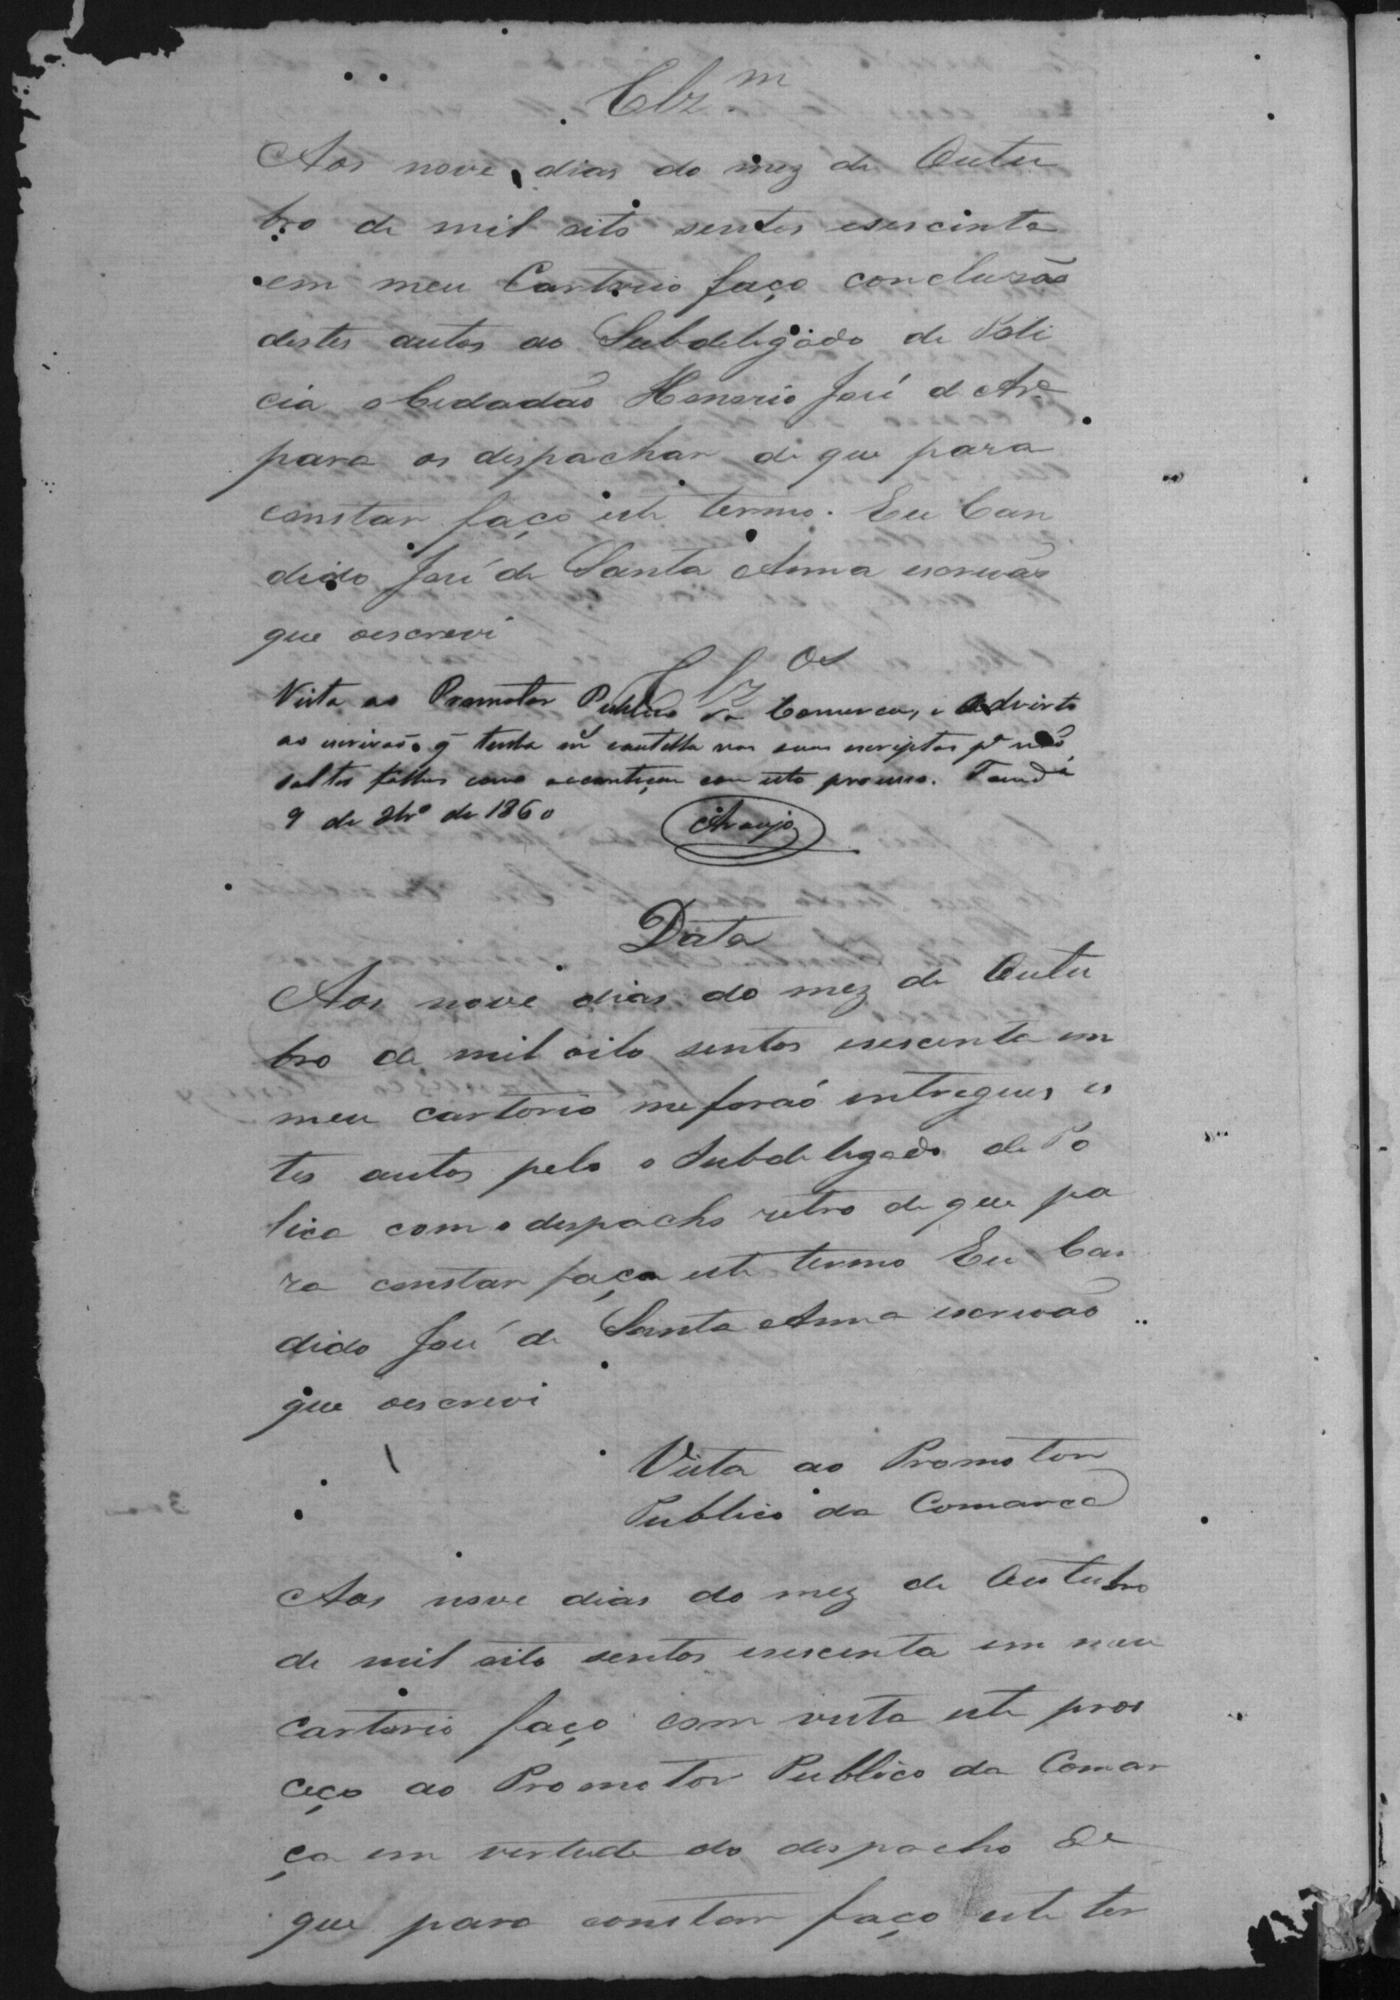 Clz.m
Aos nove dias do mez de Outu
bro de mil oito sentos esescinta
em meu Cartorio faço concluzão
destes autos ao Subdelegado de Poli
cia o Cidadão Honorio José d Arº
para os despachar de que para
constar faço este termo. Eu Can
dido José de Santa Anna escrivão
que oescrevi
Clz os
Vista ao Promotor Publico da Comarca, e advirto
ao escrivão q tenha cautella nos seus escriptos pª não
faltas como aconteçeu com este processo.
9 de 8brº de 1860
Araujo
Data
Aos nove dias do mez de Outu
bro de mil oito sentos esescenta em
meu cartorio me foraó entregues es
tes autos pelo o Subdelegado de Po
lica com o despacho retro de que pa
ra constar faço este termo Eu Can
dido José de Santa Anna escrivão
que oescrevi
Vista ao Promotor
Publico da Comarca
Aos nove dias do mez de Outubro
de mil oito sentos esescenta em meu
Cartorio faço com vista este pros
ceço ao Promotor Publico da Comar
ça em vertude do despacho De
que para constar faço este ter